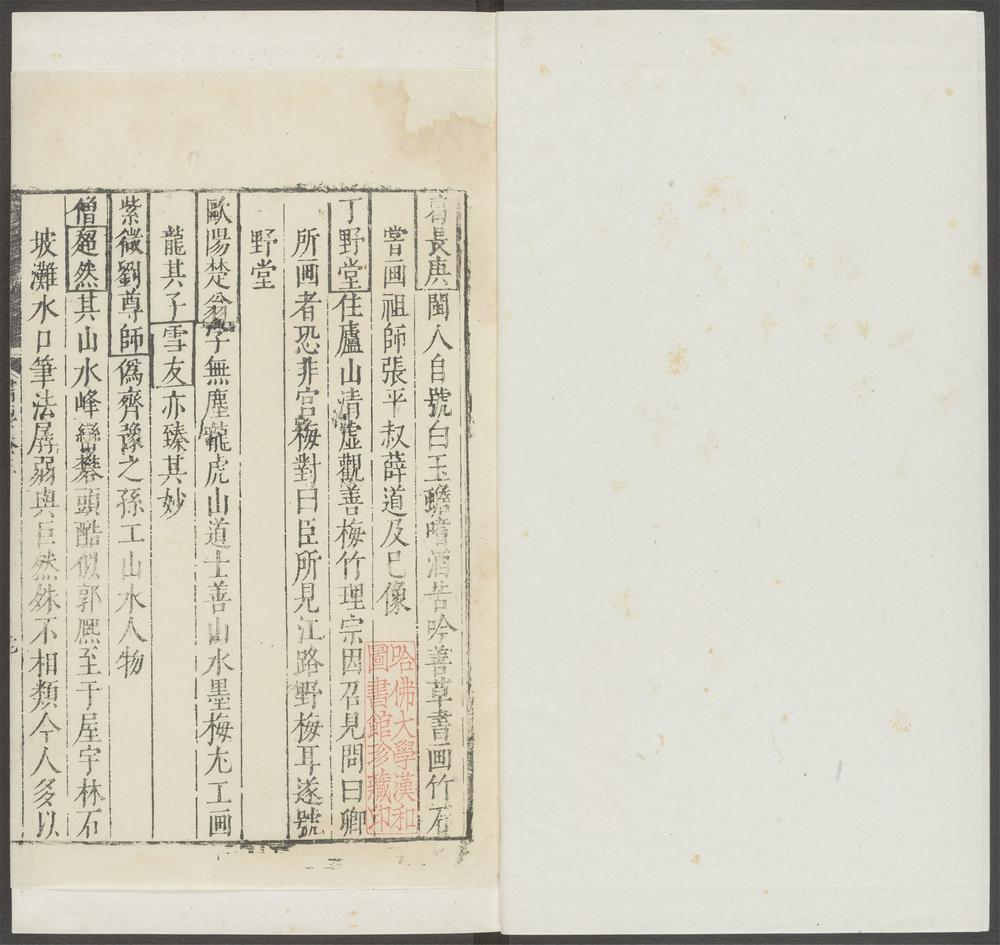 葛長庚閩人自號白玉蟾嗜酒苦吟善草書画竹石
嘗画祖師張平叔薛道及己像
丁野堂住廬山清虛觀善梅竹理宗因召見問曰卿
所画者恐非宮梅對曰臣所見江路野梅耳遂號
野堂
歐陽楚翁字無塵龍虎山道士善山水墨梅尤工画
龍其子雪友亦臻其妙
紫微劉尊師僞齊豫之孫工山水人物
僧超然其山水峰巒礬頭酷似郭熈至于屋宇林石
坡灘水口筆法孱弱與巨然殊不相類今人多以
哈佛大學漢和
圖書館珍藏印